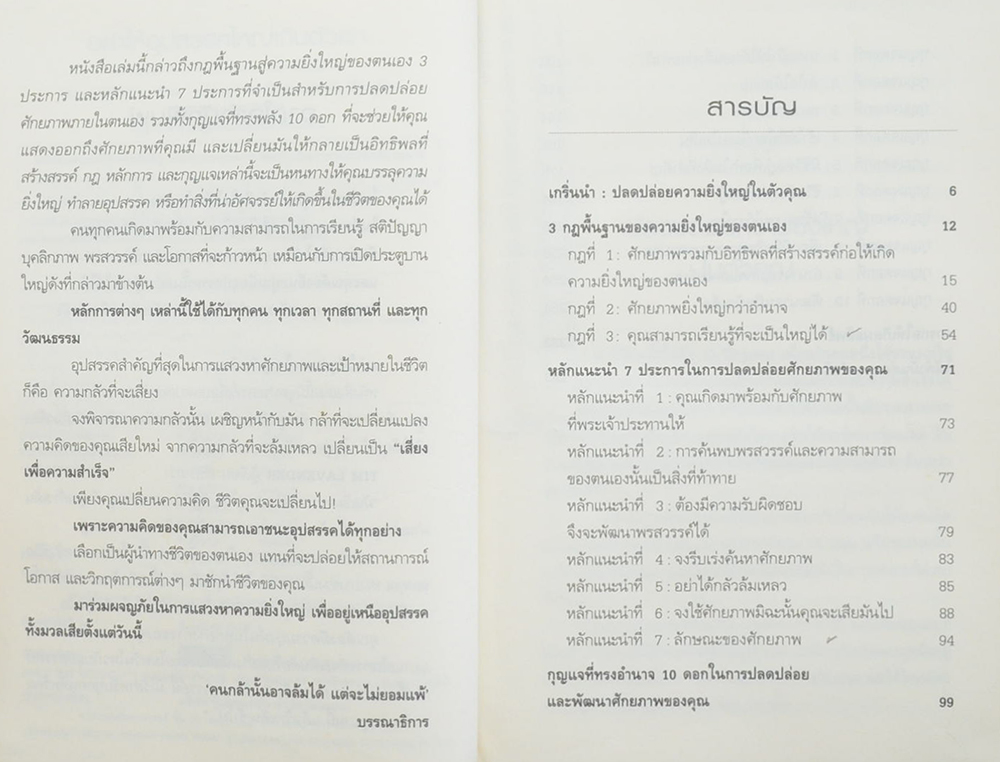 หนังสือเล่มนี้กล่าวถึงกฎพื้นฐานสู่ความยิ่งใหญ่ของตนเอง 3
ประการ และหลักแนะนำ 7 ประการที่จำเป็นสำหรับการปลดปล่อย
ศักยภาพภายในตนเอง รวมทั้งกุญแจที่ทรงพลัง 10 ดอก ที่จะช่วยให้คุณ
แสดงออกถึงศักยภาพที่คุณมี และเปลี่ยนมันให้กลายเป็นอิทธิพลที่
สร้างสรรค์ กฎ หลักการ และกุญแจเหล่านี้จะเป็นหนทางให้คุณบรรลุความ
ยิ่งใหญ่ ทำลายอุปสรรค หรือทำสิ่งที่น่าอัศจรรย์ให้เกิดขึ้นในชีวิตของคุณได้
คนทุกคนเกิดมาพร้อมกับความสามารถในการเรียนรู้ สติปัญญา
บุคลิกภาพ พรสวรรค์ และโอกาสที่จะก้าวหน้า เหมือนกับการเปิดประตูบาน
ใหญ่ดังที่กล่าวมาข้างต้น
หลักการต่างๆ เหล่านี้ใช้ได้กับทุกคน ทุกเวลา ทุกสถานที่ และทุก
วัฒนธรรม
อุปสรรคสำคัญที่สุดในการแสวงหาศักยภาพและเป้าหมายในชีวิต
ก็คือ ความกลัวที่จะเสี่ยง
จงพิจารณาความกลัวนั้น เผชิญหน้ากับมัน กล้าที่จะเปลี่ยนแปลง
ความคิดของคุณเสียใหม่ จากความกลัวที่จะล้มเหลว เปลี่ยนเป็น “เสี่ยง
เพื่อความสำเร็จ”
เพียงคุณเปลี่ยนความคิด ชีวิตคุณจะเปลี่ยนไป!
เพราะความคิดของคุณสามารถเอาชนะอุปสรรคได้ทุกอย่าง
เลือกเป็นผู้นำทางชีวิตของตนเอง แทนที่จะปล่อยให้สถานการณ์
โอกาส และวิกฤตการณ์ต่างๆ มาชักนำชีวิตของคุณ
มาร่วมผจญภัยในการแสวงหาความยิ่งใหญ่ เพื่ออยู่เหนืออุปสรรค
ทั้งมวลเสียตั้งแต่วันนี้
'คนกล้านั้นอาจล้มได้ แต่จะไม่ยอมแพ้'
บรรณาธิการ
สารบัญ
เกริ่นนำ : ปลดปล่อยความยิ่งใหญ่ในตัวคุณ 6
3 กฎพื้นฐานของความยิ่งใหญ่ของตนเอง 12
กฎที่ 1: ศักยภาพรวมกับอิทธิพลที่สร้างสรรค์ก่อให้เกิด
ความยิ่งใหญ่ของตนเอง 15
กฎที่ 2: ศักยภาพยิ่งใหญ่กว่าอำนาจ 40
กฎที่ 3: คุณสามารถเรียนรู้ที่จะเป็นใหญ่ได้ 54
หลักแนะนำ 7 ประการในการปลดปล่อยศักยภาพของคุณ 71
หลักแนะนำที่ 1 : คุณเกิดมาพร้อมกับศักยภาพ
ที่พระเจ้าประทานให้ 73
หลักแนะนำที่ 2 : การค้นพบพรสวรรค์และความสามารถ
ของตนเองนั้นเป็นสิ่งที่ท้าทาย 77
หลักแนะนำที่ 3 : ต้องมีความรับผิดชอบ
จึงจะพัฒนาพรสวรรค์ได้ 79
หลักแนะนำที่ 4 : จงรีบเร่งค้นหาศักยภาพ 83
หลักแนะนำที่ 5 : อย่าได้กลัวล้มเหลว 85
หลักแนะนำที่ 6 : จงใช้ศักยภาพมิฉะนั้นคุณจะเสียมันไป 88
หลักแนะนำที่ 7 : ลักษณะของศักยภาพ 94
กุญแจที่ทรงอำนาจ 10 ดอกในการปลดปล่อย
และพัฒนาศักยภาพของคุณ 99